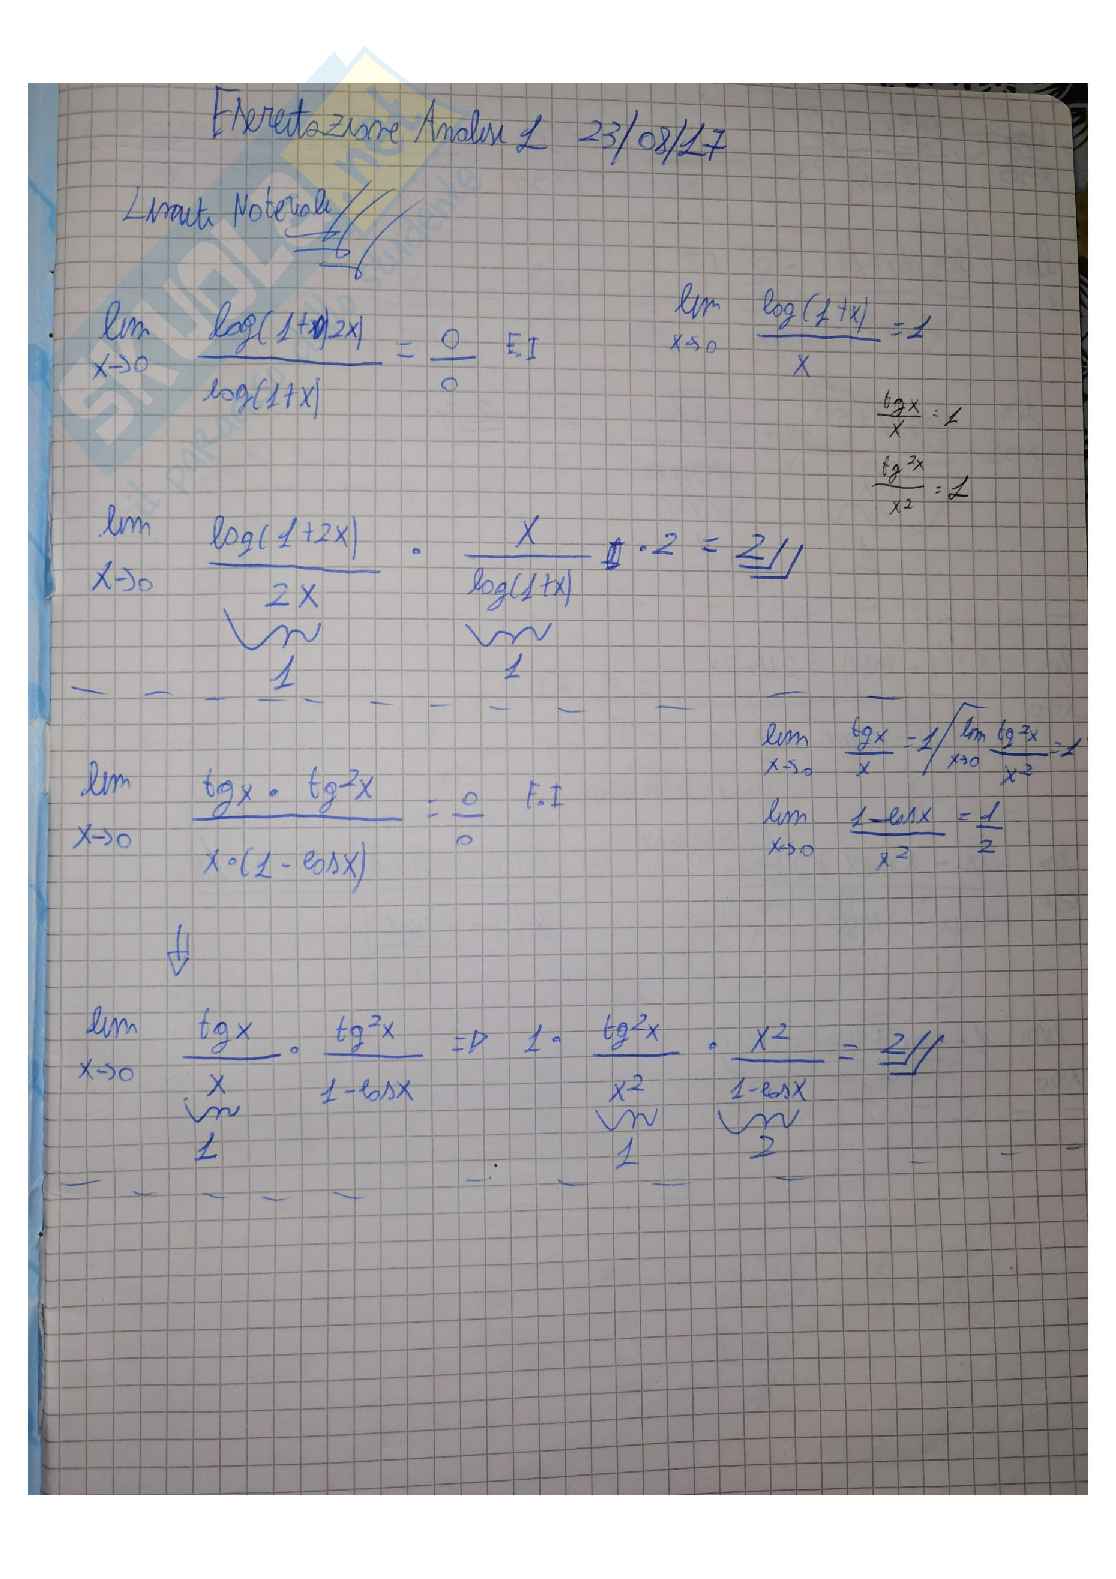 Esercitazione Analisi 1 23/08/17
Limiti Notevoli
lim x→0 log(1+2x) / log(1+x) = 0/0 F.I
lim x→0 log(1+x) / x = 1
tgx / x = 1
tg²x / x² = 1
lim x→0 log(1+2x) / 2x · x / log(1+x) · 2 = 2
1 1
lim x→0 tgx / x = 1 / lim x→0 tg²x / x² = 1
lim x→0 tgx · tg²x / x·(1-cosx) = 0/0 F.I
lim x→0 1-cosx / x² = 1/2
⇓
lim x→0 tgx / x · tg²x / 1-cosx => 1 · tg²x / x² · x² / 1-cosx = 2
1 1 2
SKUOLA.net